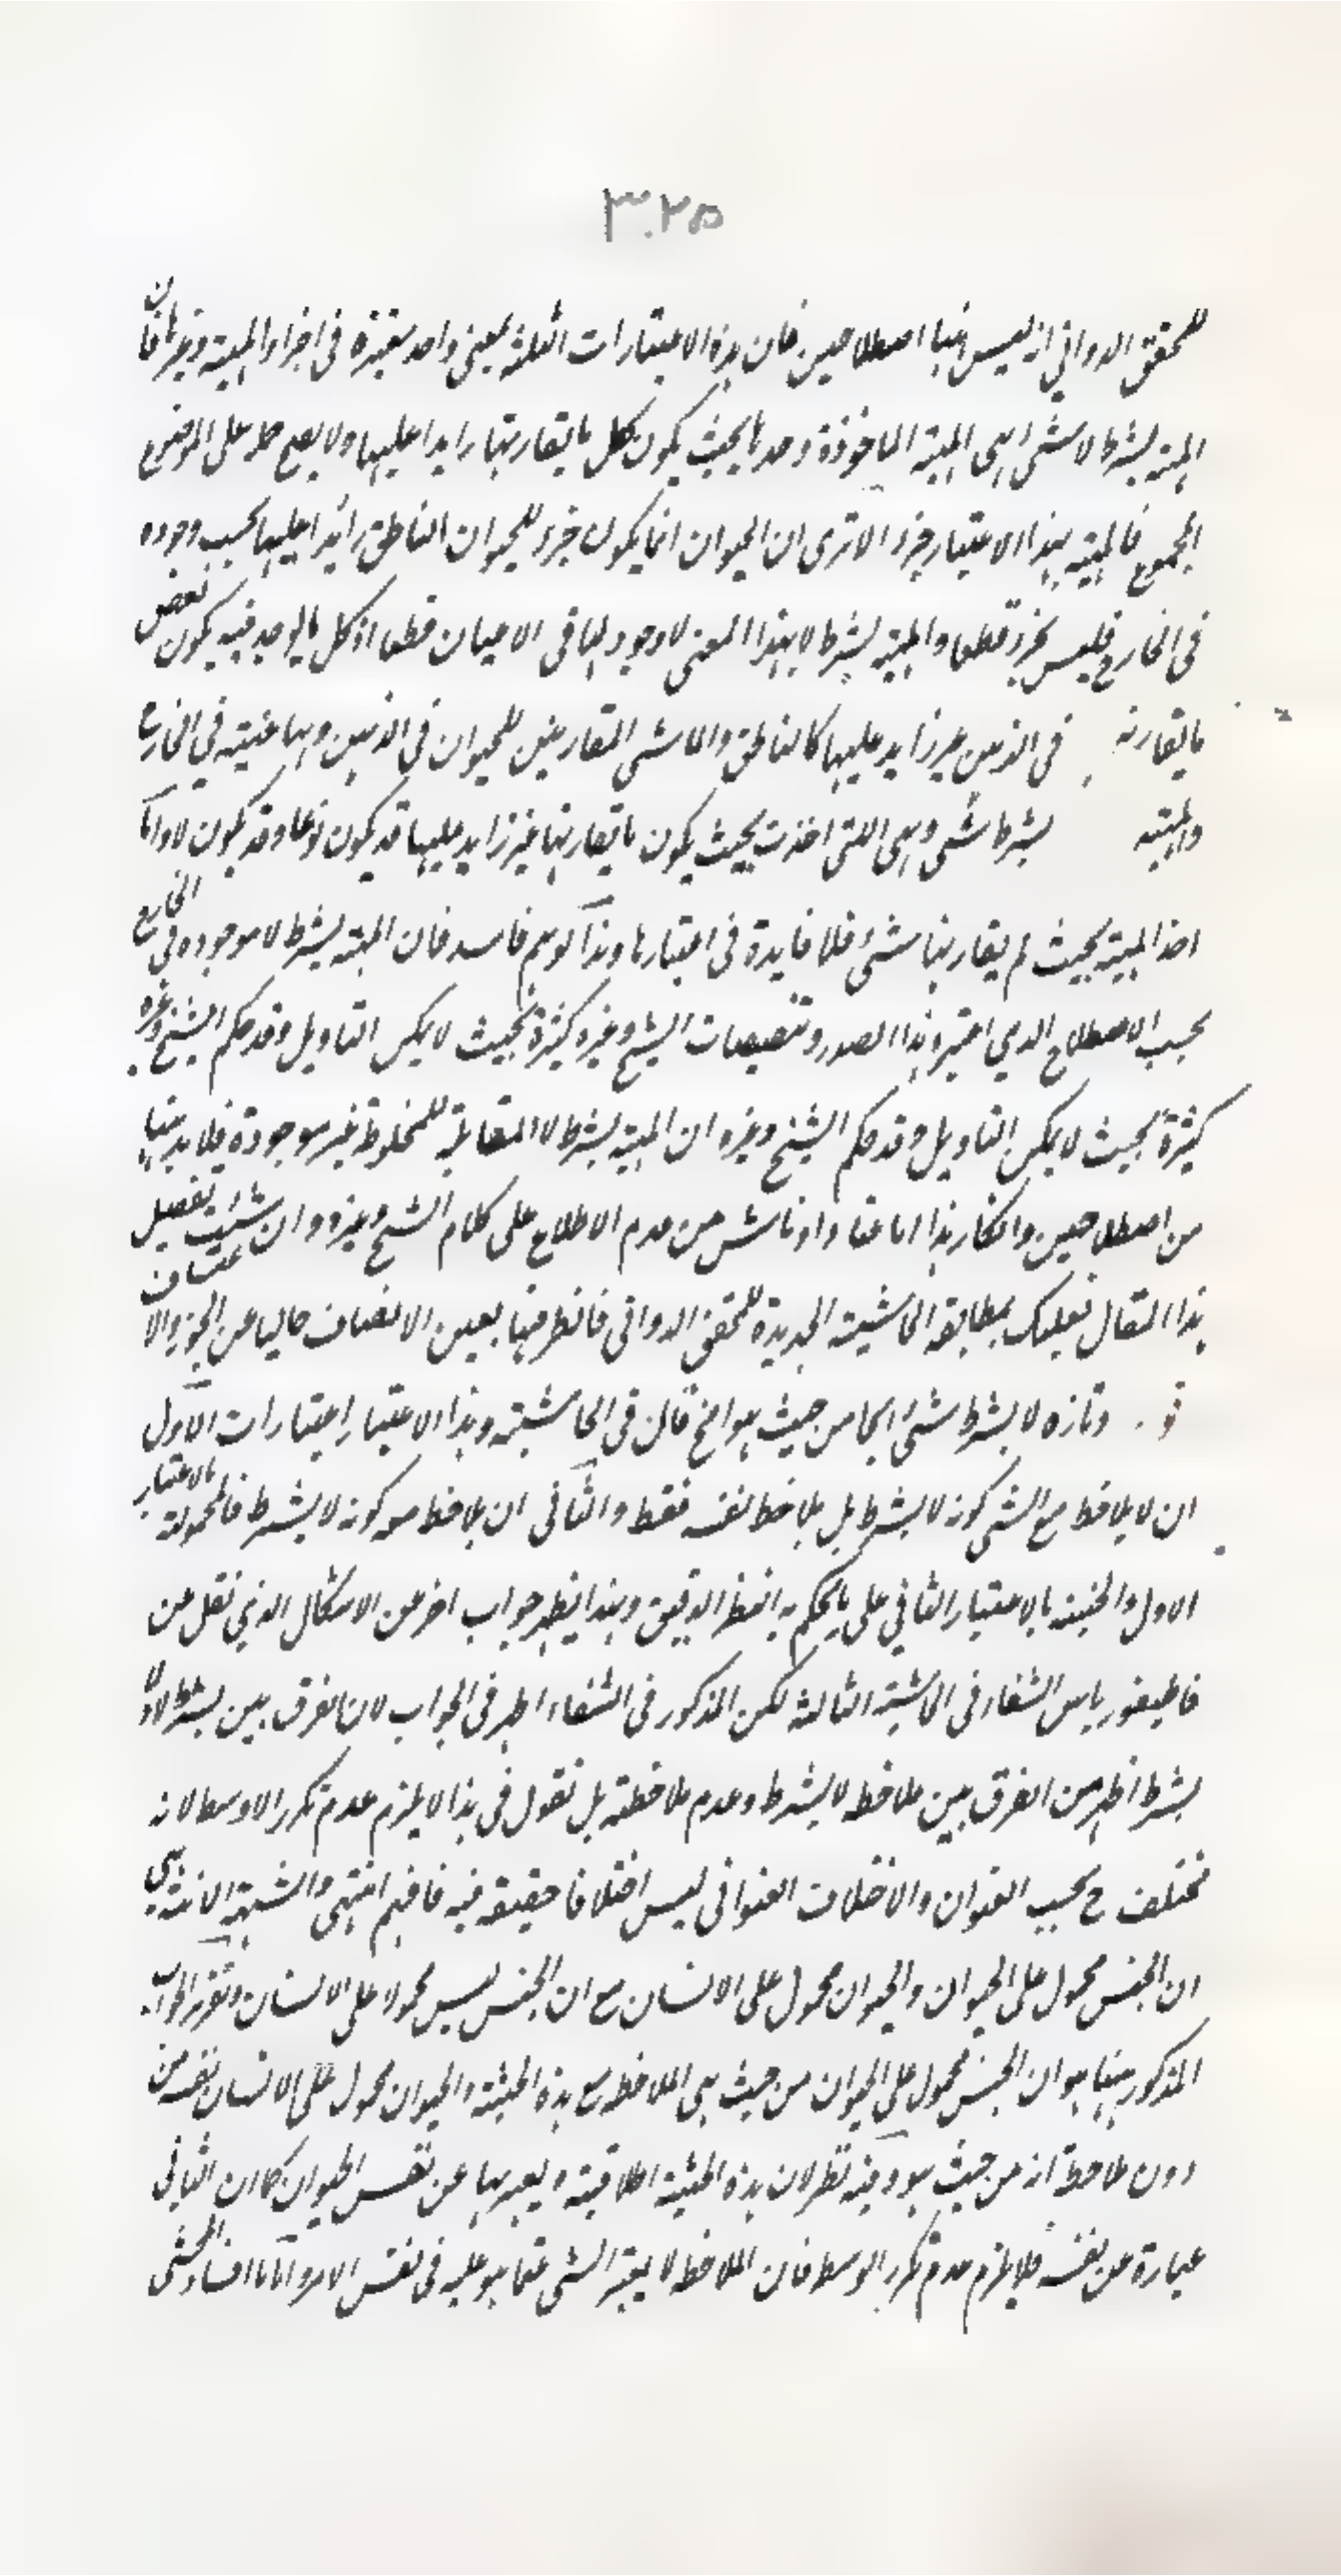 ٣٠٢٥
للمحقق الدواني انه ليس هنا اصطلاحين فان هذه الاعتبارات الثلثة بمعنى واحد معتبرة في اجزاء المهية وغيرها فان
المهية بشرط لا شئ اي هي المهية الماخوذة وحدها بحيث يكون كل ما يقارنها زايدا عليها ولا يصح حملا على الموضوع
المجموع فالمهية بهذا الاعتبار جزء الا ترى ان الحيوان انما يكون جزء للحيوان الناطق زائدا عليها بحسب وجوده
في الخارج فليس بجزء قطعا والمهية بشرط لا بهذا المعنى لا وجود لها في الاعيان قطعا اذ كل ما يوجد فيه يكون بعض
ما يقارنه في الذهن غير زايد عليها كالناطق والماشي المقارنين للحيوان في الذهن وهما عينيته في الخارج
والمهية بشرط شئ وهي التي اخذت بحيث يكون ما يقارنها غير زايد عليها قد يكون نوعا وقد يكون لا واما
اخذ المهية بحيث لم يقارنها شئ فلا فايدة في اعتبارها وهذا توهم فاسد فان المهية بشرط لا موجودة في الخارج
بحسب الاصطلاح الذي اعتبره هذا الصدر وتنصيصات الشيخ وغيره كثيرة بحيث لا يمكن التاويل وقد حكم الشيخ وغيره
كثيرة بحيث لا يمكن التاويل وقد حكم الشيخ وغيره ان المهية بشرط لا المقابلة للمخلوطة غير موجودة فلا بد هنا
من اصطلاحين وانكار هذا اما عناد او ناش من عدم الاطلاع على كلام الشيخ وغيره وان شئت تفصيل
هذا المقال فعليك بمطالعة الحاشية الجديدة للمحقق الدواني فانظر فيها بعين الانصاف خاليا عن الجور والاعتساف
قو وتازه لا بشرط شئ ايجا من حيث هو الخ قال في الحاشية وهذا الاعتبار اعتبارات الاول
ان لا يلاحظ مع الشئ كونه لا بشرط بل يلاحظ نفسه فقط والثاني ان يلاحظ معه كونه لا بشرط فالمحمولة بالاعتبار
الاول والجنسية بالاعتبار الثاني على ما يحكم به النظر الدقيق وبهذا يظهر جواب اخر عن الاشكال الذي نقل من
قاطيغورياس الشفاء في الحاشية الثالثة لكن المذكور في الشفاء اظهر في الجواب لان الفرق بين بشرط لا ولا
بشرط اظهر من الفرق بين ملاحظه لا بشرط وعدم ملاحظته بل نقول في هذا لا يلزم عدم تكرر الاوسط لانه
مختلف ح بحسب العنوان والاختلاف العنواني ليس اختلافا حقيقة فيه فافهم انتهى والشبهة الاتية هي
ان الجنس محمول على الحيوان والحيوان محمول على الانسان مع ان الجنس ليس محمولا على الانسان وتقرير الجواب
المذكور ههنا هو ان الجنس محمول على الحيوان من حيث هي الملاحظ مع هذه الحيثية والحيوان محمول على الانسان نفسه من
دون ملاحظة انه من حيث هو وفيه نظر لان هذه الحيثية اطلاقية ويعبر بها عن نفس الحيوان كما ان الثاني
عبارة عن نفسه فلا يلزم عدم تكرر الوسط فان الملاحظ لا يغير الشئ عما هو عليه في نفس الامر واما ما افاده المحشي